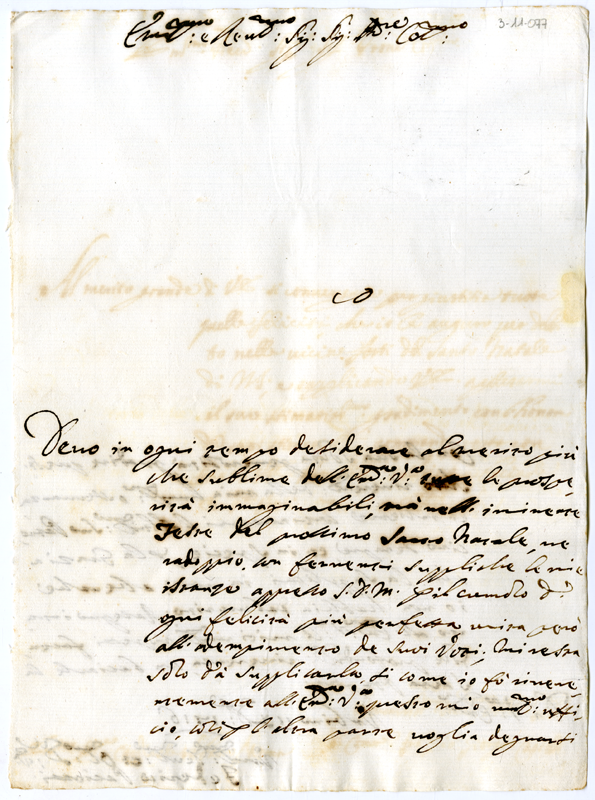 3-11-077
Em.mo: e Reud.mo: Sig: Sig: P.re Col.mo:
Devo in ogni tempo desiderare al merito più
che sublime dell'Em.za: V.a tutte le prospe,
rità immaginabili, mà nell'iminente
Feste del prossimo Santo Natale, ne
radoppio con ferventi suppliche le mie
istanze appresso S.D.M. p il cumolo d'
ogni felicità più perfetta unita però
all'adempimento de Suoi Voti; Mi resta
solo da supplicarla, si come io fò rivere,
temente all'Em.za: V.a questo mio um.mo: uffi,
cio, così p l'altra parte voglia degnarsi